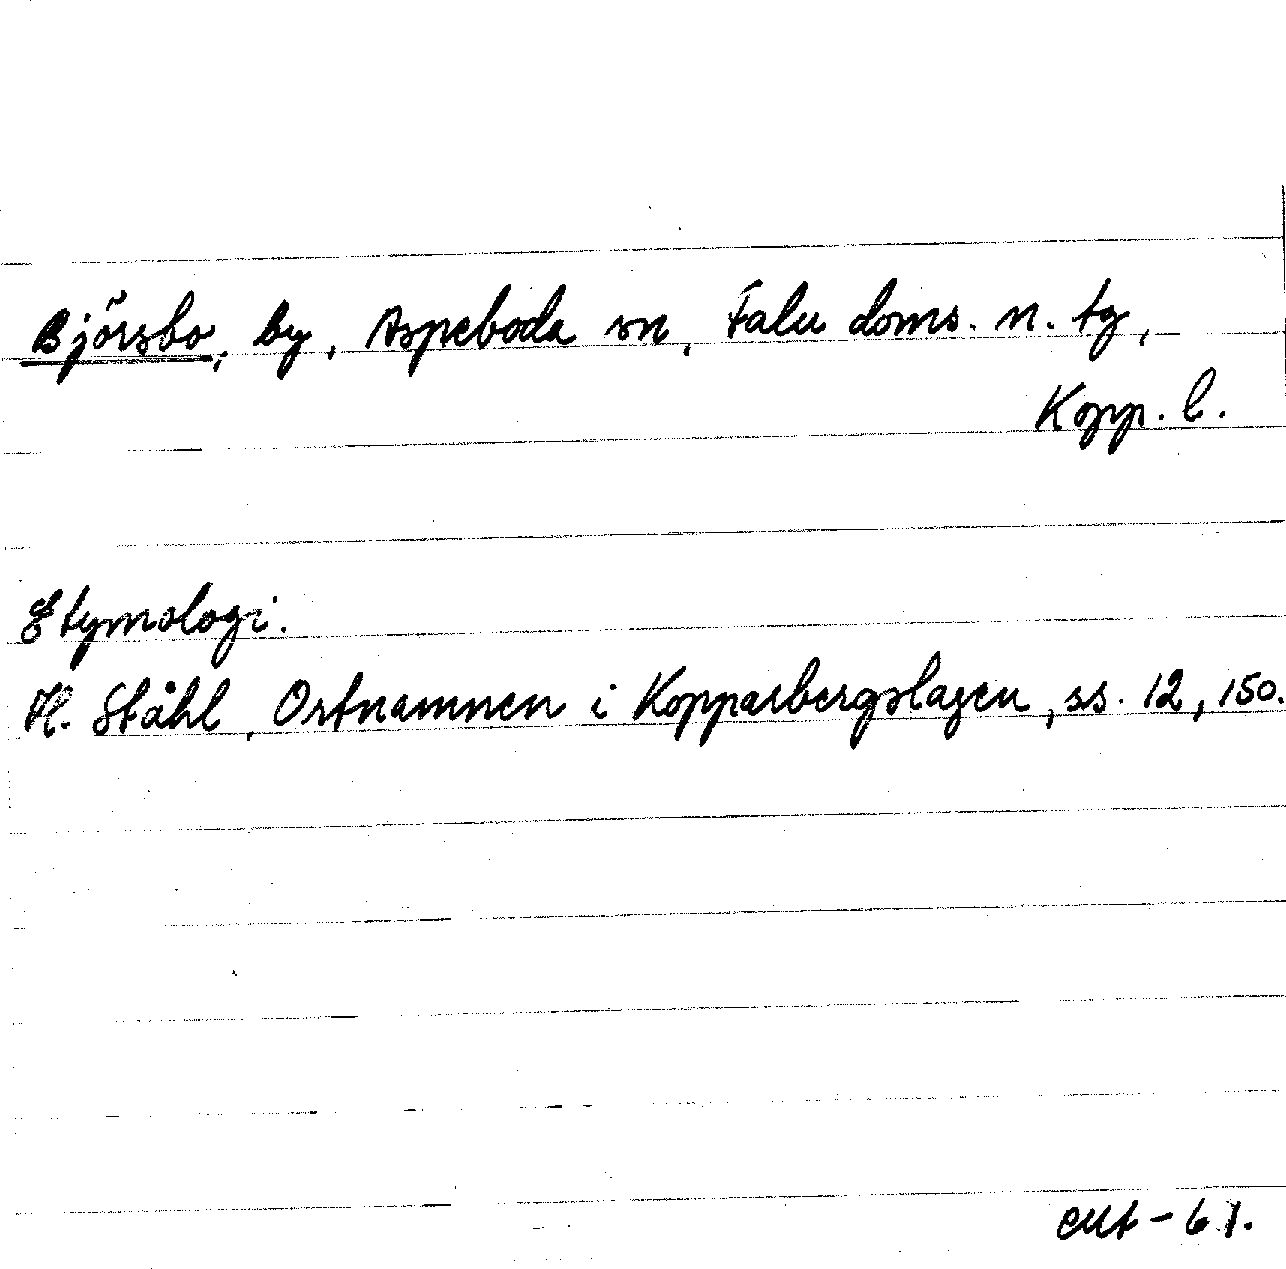 Björsbo, by, Aspeboda sn, Falu doms. n. tg,
Kopp. l.
Etymologi.
H. Ståhl, Ortnamnen i Kopparbergslagen, ss. 12, 150.
-61.